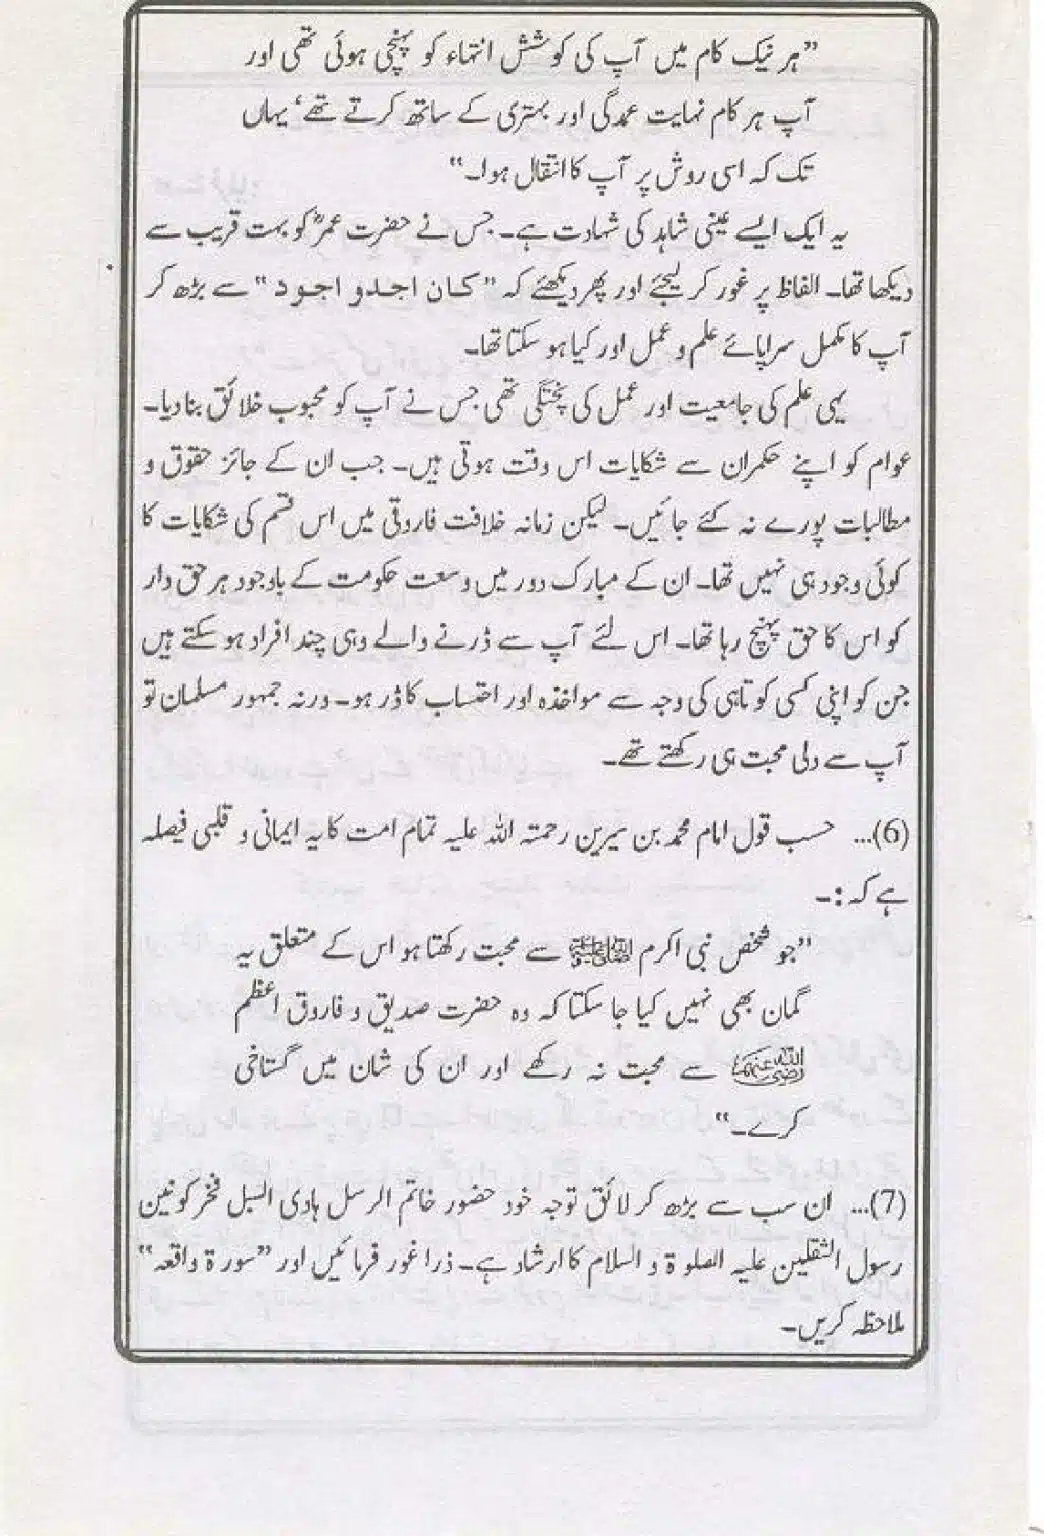 ”ہر نیک کام میں آپ کی کوشش انتہاء کو پہنچی ہوئی تھی اور
آپ ہر کام نہایت عمدگی اور بہتری کے ساتھ کرتے تھے‘ یہاں
تک کہ اسی روش پر آپ کا انتقال ہوا۔“
یہ ایک ایسے عینی شاہد کی شہادت ہے۔ جس نے حضرت عمرؓ کو بہت قریب سے
دیکھا تھا۔ الفاظ پر غور کر لیجئے اور پھر دیکھئے کہ ”کان اجدو اجود“ سے بڑھ کر
آپ کا مکمل سراپائے علم و عمل اور کیا ہو سکتا تھا۔
یہی علم کی جامعیت اور عمل کی پختگی تھی جس نے آپ کو محبوب خلائق بنا دیا۔
عوام کو اپنے حکمران سے شکایات اس وقت ہوتی ہیں۔ جب ان کے جائز حقوق و
مطالبات پورے نہ کئے جائیں۔ لیکن زمانہ خلافت فاروقی میں اس قسم کی شکایات کا
کوئی وجود ہی نہیں تھا۔ ان کے مبارک دور میں وسعت حکومت کے باوجود ہر حق دار
کو اس کا حق پہنچ رہا تھا۔ اس لئے آپ سے ڈرنے والے وہی چند افراد ہو سکتے ہیں
جن کو اپنی کسی کوتاہی کی وجہ سے مواخذہ اور احتساب کا ڈر ہو۔ ورنہ جمہور مسلمان تو
آپ سے دلی محبت ہی رکھتے تھے۔
(6)... حسب قول امام محمد بن سیرین رحمتہ اللہ علیہ تمام امت کا یہ ایمانی و قلبی فیصلہ
ہے کہ:۔
”جو شخص نبی اکرم ﷺ سے محبت رکھتا ہو اس کے متعلق یہ
گمان بھی نہیں کیا جا سکتا کہ وہ حضرت صدیق و فاروق اعظم
رضی اللہ عنہما سے محبت نہ رکھے اور ان کی شان میں گستاخی
کرے۔“
(7)... ان سب سے بڑھ کر لائق توجہ خود حضور خاتم الرسل ہادی السبل فخر کونین
رسول الثقلین علیہ الصلوۃ و السلام کا ارشاد ہے۔ ذرا غور فرمائیں اور ”سورۃ واقعہ“
ملاحظہ کریں۔